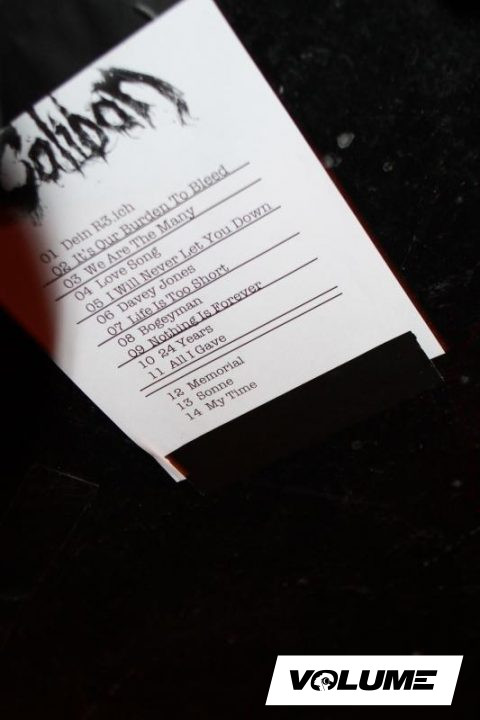 Caliban
01 Dein R3.ich
02 It's Our Burden To Bleed
03 We Are The Many
04 Love Song
05 I Will Never Let You Down
06 Davey Jones
07 Life Is Too Short
08 Bogeyman
09 Nothing Is Forever
10 24 Years
11 All I Gave
12 Memorial
13 Sonne
14 My Time
VOLUME